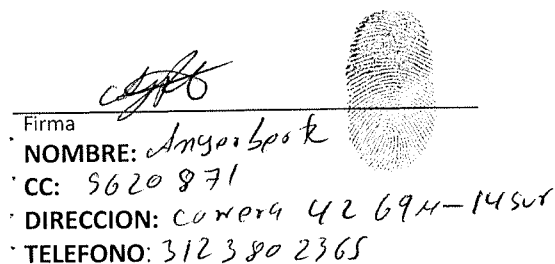 Firma
NOMBRE:
CC: 5620871
DIRECCION: carrera 42 69M-14 sur
TELEFONO: 312 380 2365